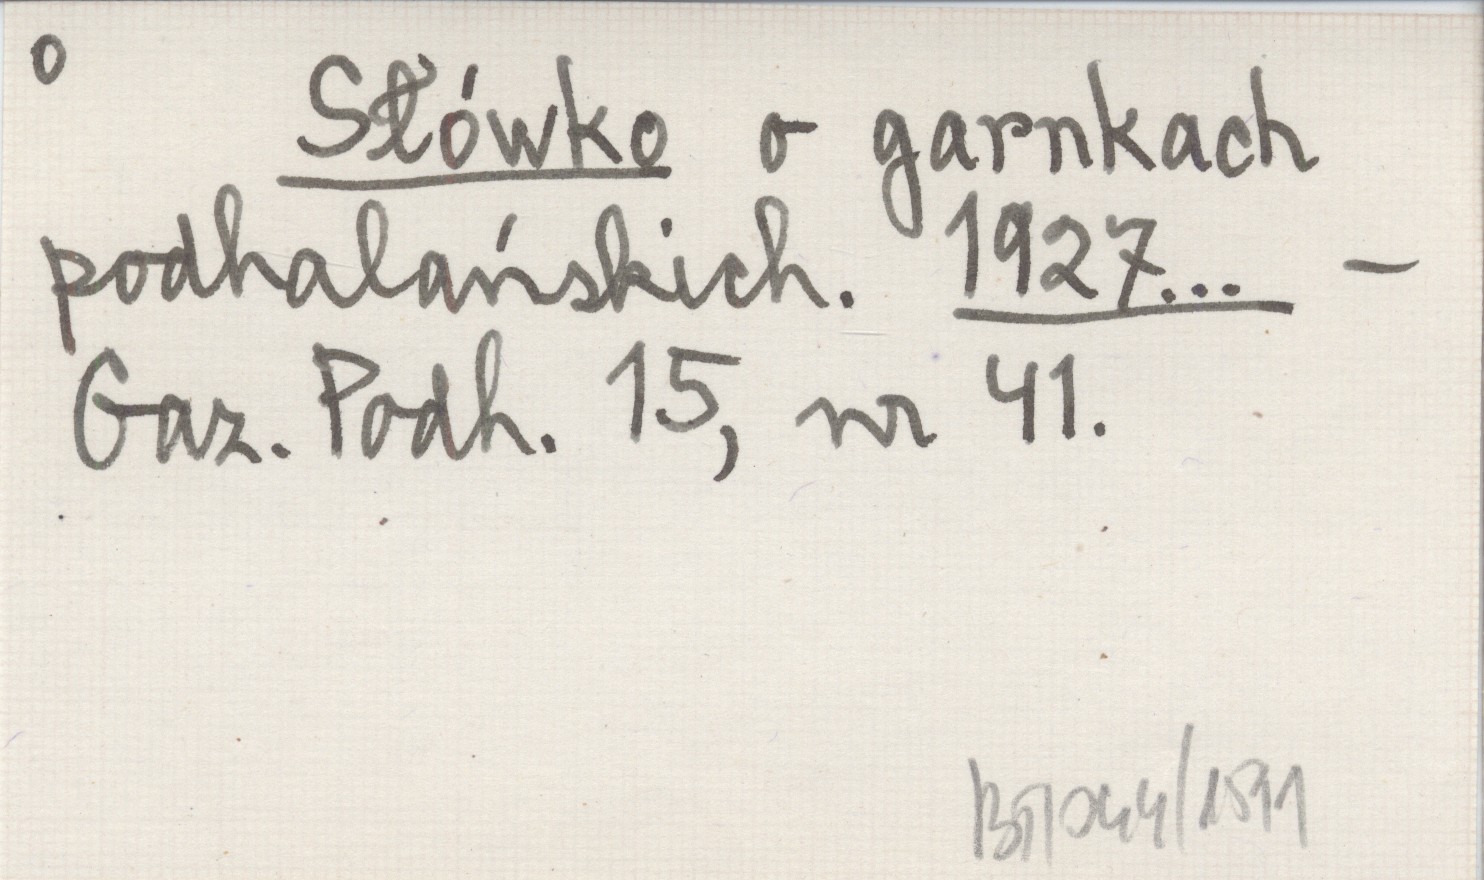 o
Słówko o garnkach
podhalańskich. 1927... –
Gaz. Podh. 15, nr 41.